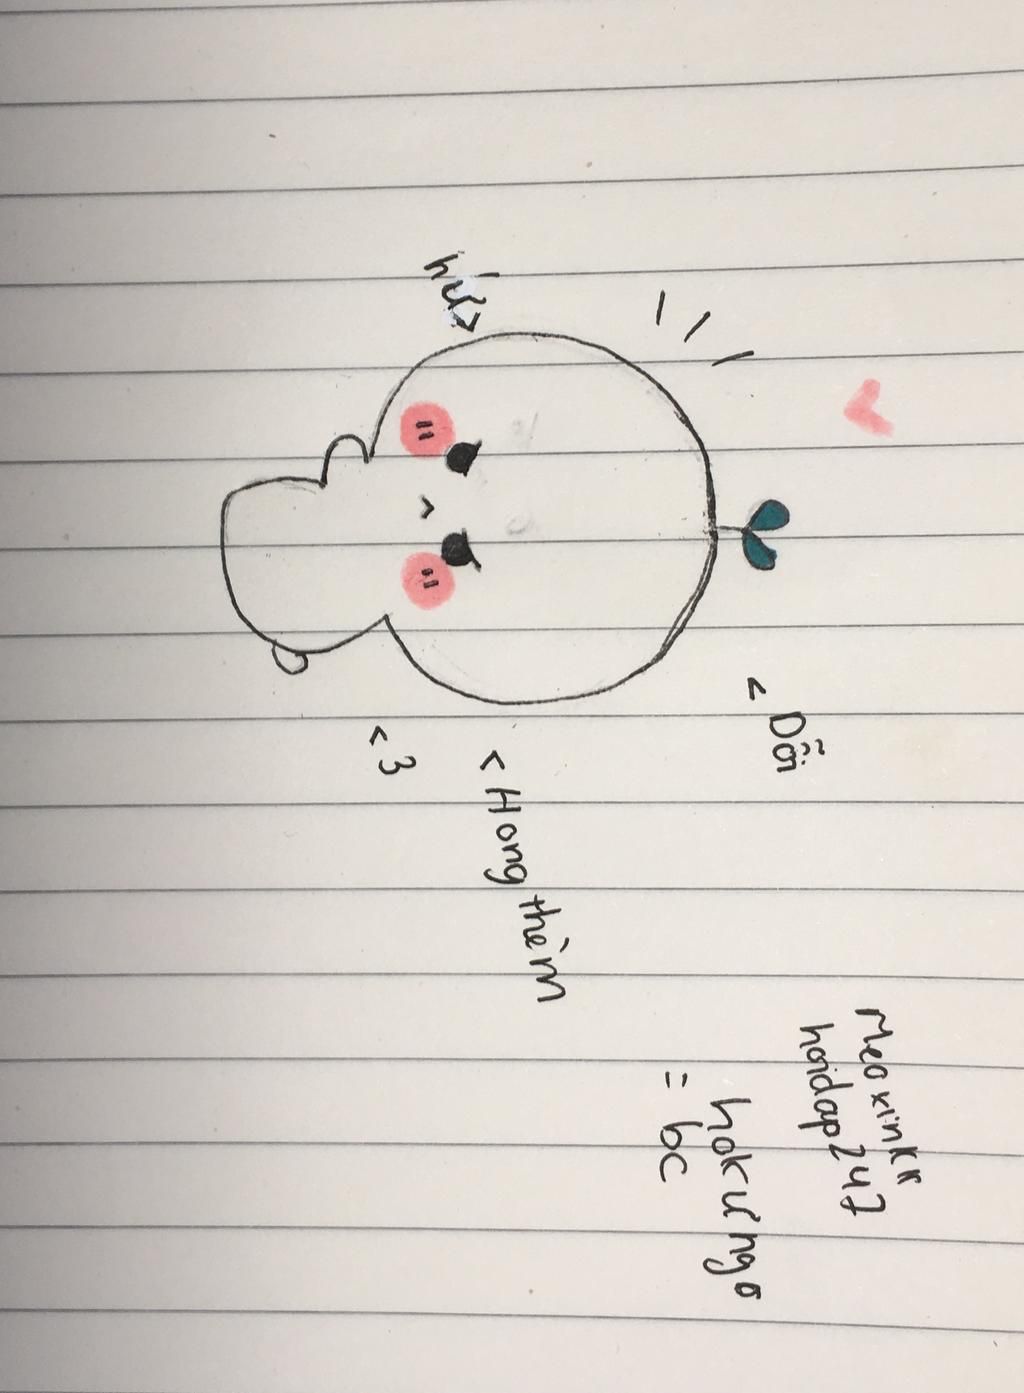 Meo xinkk
hoidap247
hok ưng σ
= bc
< Dỗi
< Hong
thèm
< 3